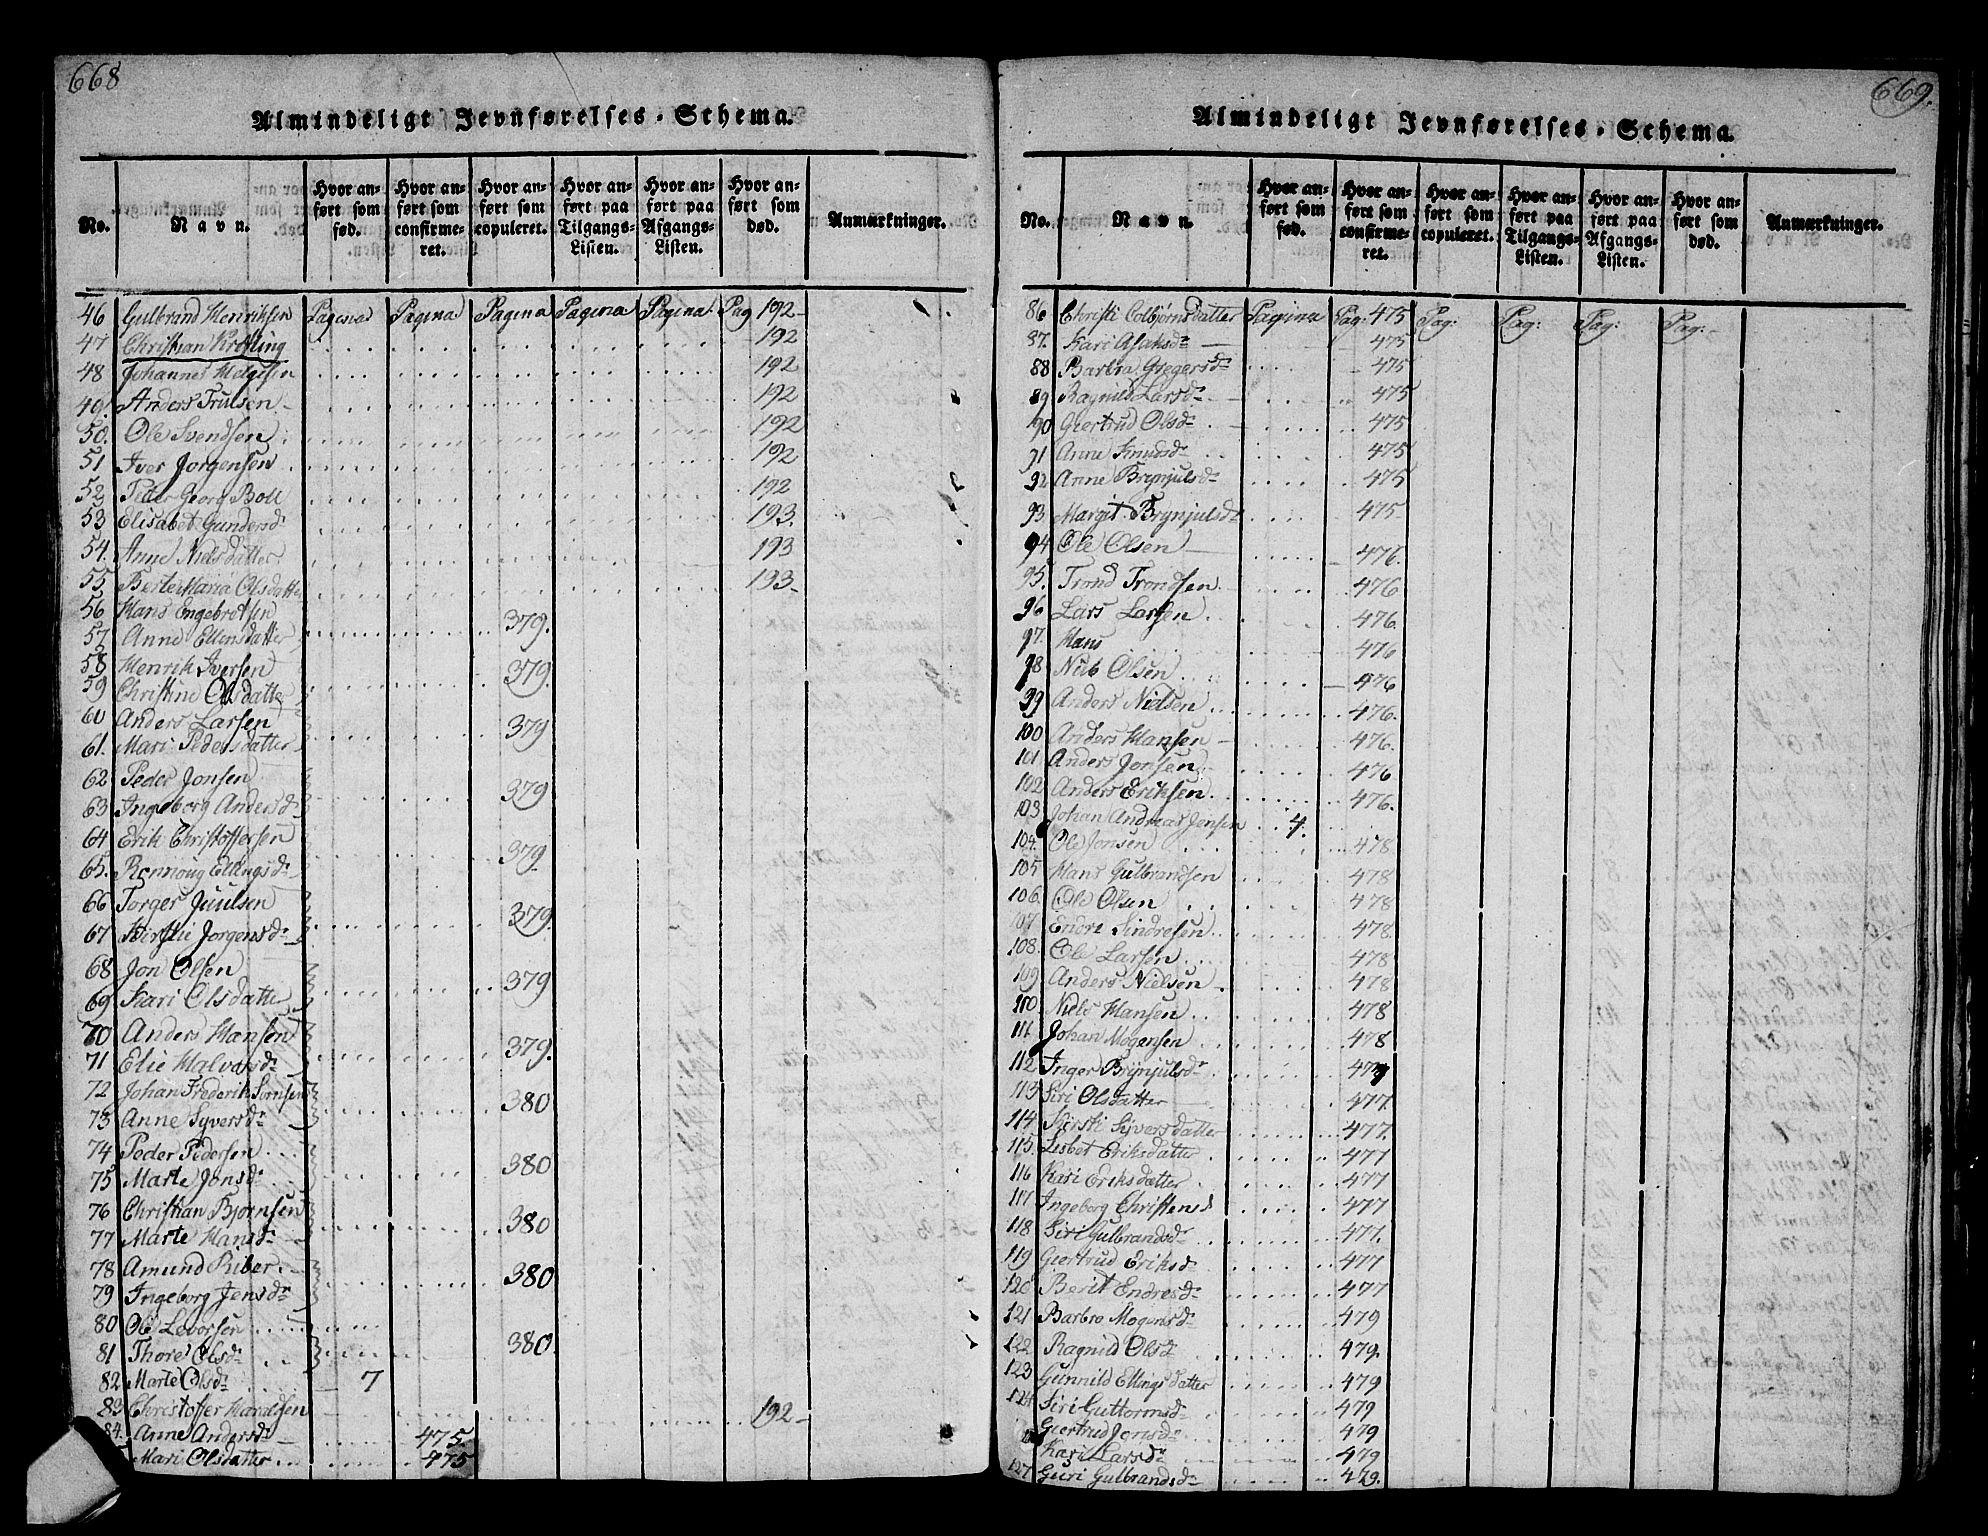 668
Almindeligt Jevnførelses-Schema.
No.
Navn.
Hvor anført som fød.
Hvor anført som confirmeret.
Hvor anført som copuleret.
Hvor anført paa Tilgangs-Listen.
Hvor anført paa Afgangs-Listen.
Hvor anført som død.
Anmærkninger.
46 Gulbrand Henriksen Pagina Pagina Pagina Pagina Pagina Pag 192
47 Christian 192
48 Johannes Helgesen 192
49. Anders Trulsen 192
50. Ole Svendsen 192
51 Iver Jorgensen 192
52 Peder Georg Boll 192
53 Elisabet Gundersdr 193.
54. Anne Nielsdatter 193
55 Berte Maria Olsdatter 193
56 Hans Engebretsen 379.
57 Anne Ellensdatter
58 Henrik Iversen 379.
59 Christine Olsdatter
60 Anders Larsen 379
61. Mari Pedersdatter
62 Peder Jonsen 379
63 Ingeborg Andersdr
64 Erik Christoffersen 379
65. Rønnoug Ellingsdr
66 Torger Juulsen 379.
67 Kirstie Jorgensdr
68 Jon Olsen 379
69 Kari Olsdatter
70 Anders Hansen 379.
71 Elie Halvorsdr
72 Johan Frederik Sørnsen 380
73 Anne Syversdr
74 Peder Pedersen 380
75 Marte Jonsdr
76 Christian Bjornsen 380
77 Marte Hansdr
78 Amund Riber 380
79 Ingeborg Jensdr
80 Ole Levorsen 380
81 Thore Olsdr
82 Marte Olsdr 7
83 Christoffer Haralsen 192
84. Anne Andersdr 475.
Mari Olsdatter 475
669.
Almindeligt Jevnførelses-Schema.
No.
Navn.
Hvor anført som fød.
Hvor anført som confirmeret.
Hvor anført som copuleret.
Hvor anført paa Tilgangs-Listen.
Hvor anført paa Afgangs-Listen.
Hvor anført som død.
Anmærkninger.
86 Christi Colbjørnsdatter Pagina Pag: 475 Pag: Pag: Pag: Pag:
87. Kari Asaksdr 475
88 Barbra Gregersdr 475
89 Ragnild Larsdr 475
90 Giertrud Olsdr 475
91 Anne Knudsdr 475
92 Anne Brynjulsdr 475
93 Margit Brynjulsdr 475
94 Ole Olsen 476.
95. Trond Trondsen 476
96 Lars Larsen 476.
97. Hans 476
98 Niels Olsen 476
99 Anders Nielsen 476.
100 Anders Hansen 476.
101 Anders Jonsen 476
102 Anders Eriksen 476.
103 Johan Andreas Jensen 4.
104. Ole Jonsen 478
105 Hans Gulbrandsen 478
106. Ole Olsen 478
107 Endre Sindresen 478.
108. Ole Larsen 478
109 Anders Nielsen 478
110. Niels Hansen 478
111. Johan Mogensen 478
112 Inger Brynjulsdr
113 Siri Olsdatter 477.
114 Kirsti Syversdatter 477.
115. Lisbet Eriksdatter 477
116 Kari Eriksdatter 477
117 Ingeborg Christensd 477
118 Siri Gulbrandsdr 477.
119 Giertrud Eriksd 477
120 Berit Endresdr 477
121 Barbro Mogensdr 479
122 Ragnild Olsd 479.
123 Gunnild Ellingsdatter 479
124 Siri Guttormsdr 479
Giertrud Jonsdr 479
Kari Larsdr 479
127 Guri Gulbrandsdr 479.